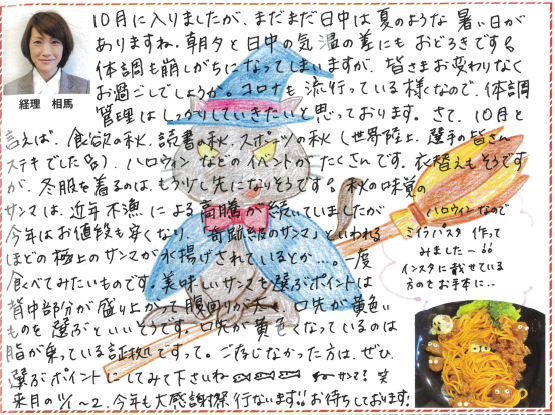 10月に入りましたが、まだまだ日中は夏のような暑い日が
ありますね。朝夕と日中の気温の差にもおどろきです。
体調も崩しがちになってしまいますが、皆さまお変わりなく
お過ごしでしょうか。コロナも流行っている様なので、体調
管理はしっかりしていきたいと思っております。さて、10月と
経理 相馬
言えば、食欲の秋、読書の秋、スポーツの秋(世界陸上、選手の皆さん
ステキでした)、ハロウィンなどのイベントがたくさんです。衣替えもそうです
が、冬服を着るのは、もう少し先になりそうです。秋の味覚の
サンマは、近年不漁による高騰が続いていましたが
今年はお値段も安くなり、「奇跡級のサンマ」といわれる
ほどの極上のサンマが水揚げされているとか…。一度
食べてみたいものです。美味しいサンマを選ぶポイントは
背中部分が盛り上がって腹回りが太く、口先が黄色い
ものを選ぶといいそうです。口先が黄色くなっているのは
脂が乗っている証拠ですって。ご存じなかった方は、ぜひ
選ぶポイントにしてみて下さいね サンマ! 笑
来月の11/1~2、今年も大感謝祭行ないます!!お待ちしております!
ハロウィンなので
ミイラパスタ 作って
みました〜
インスタに載せている
方のをお手本に..